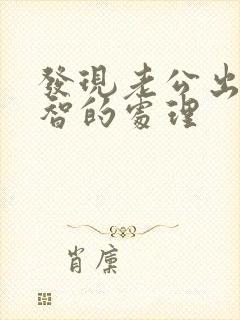 發現老公出
智的處理
肖廩